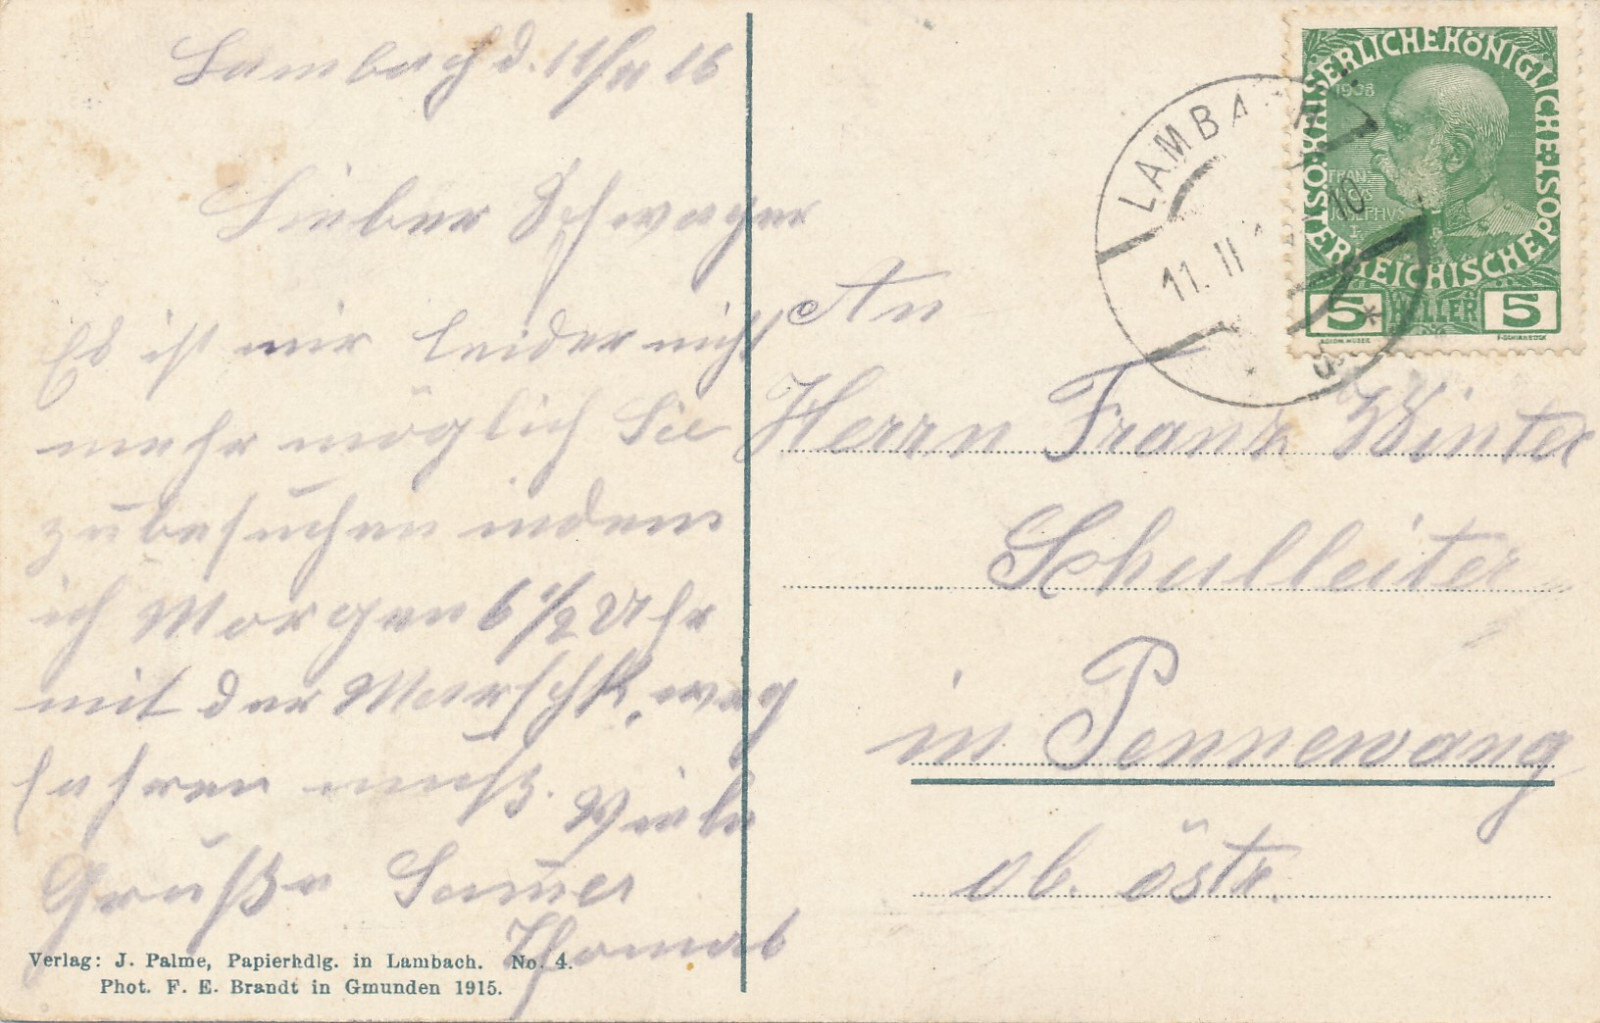 Lambach d. 11/II 16
Lieber Schwager
Es ist mir leider nicht
mehr möglich Sie
zubesuchen indem
ich Morgen 6 1/2 Uhr
mit der Marschk. weg
fahren muß. Viele
Grüße Sauer
Thomas
Verlag: J. Palme, Papierhdlg. in Lambach. No. 4.
Phot. F. E. Brandt in Gmunden 1915.
An
Herrn Franz Winter
Schulleiter
in Pennewang
ob. östr.
LAMBACH
11. II
KAISERLICHE KÖNIGLICHE ÖSTERREICHISCHE POST
1908
FRAN
CISCVS
JOSEPHVS
I.
5 HELLER 5